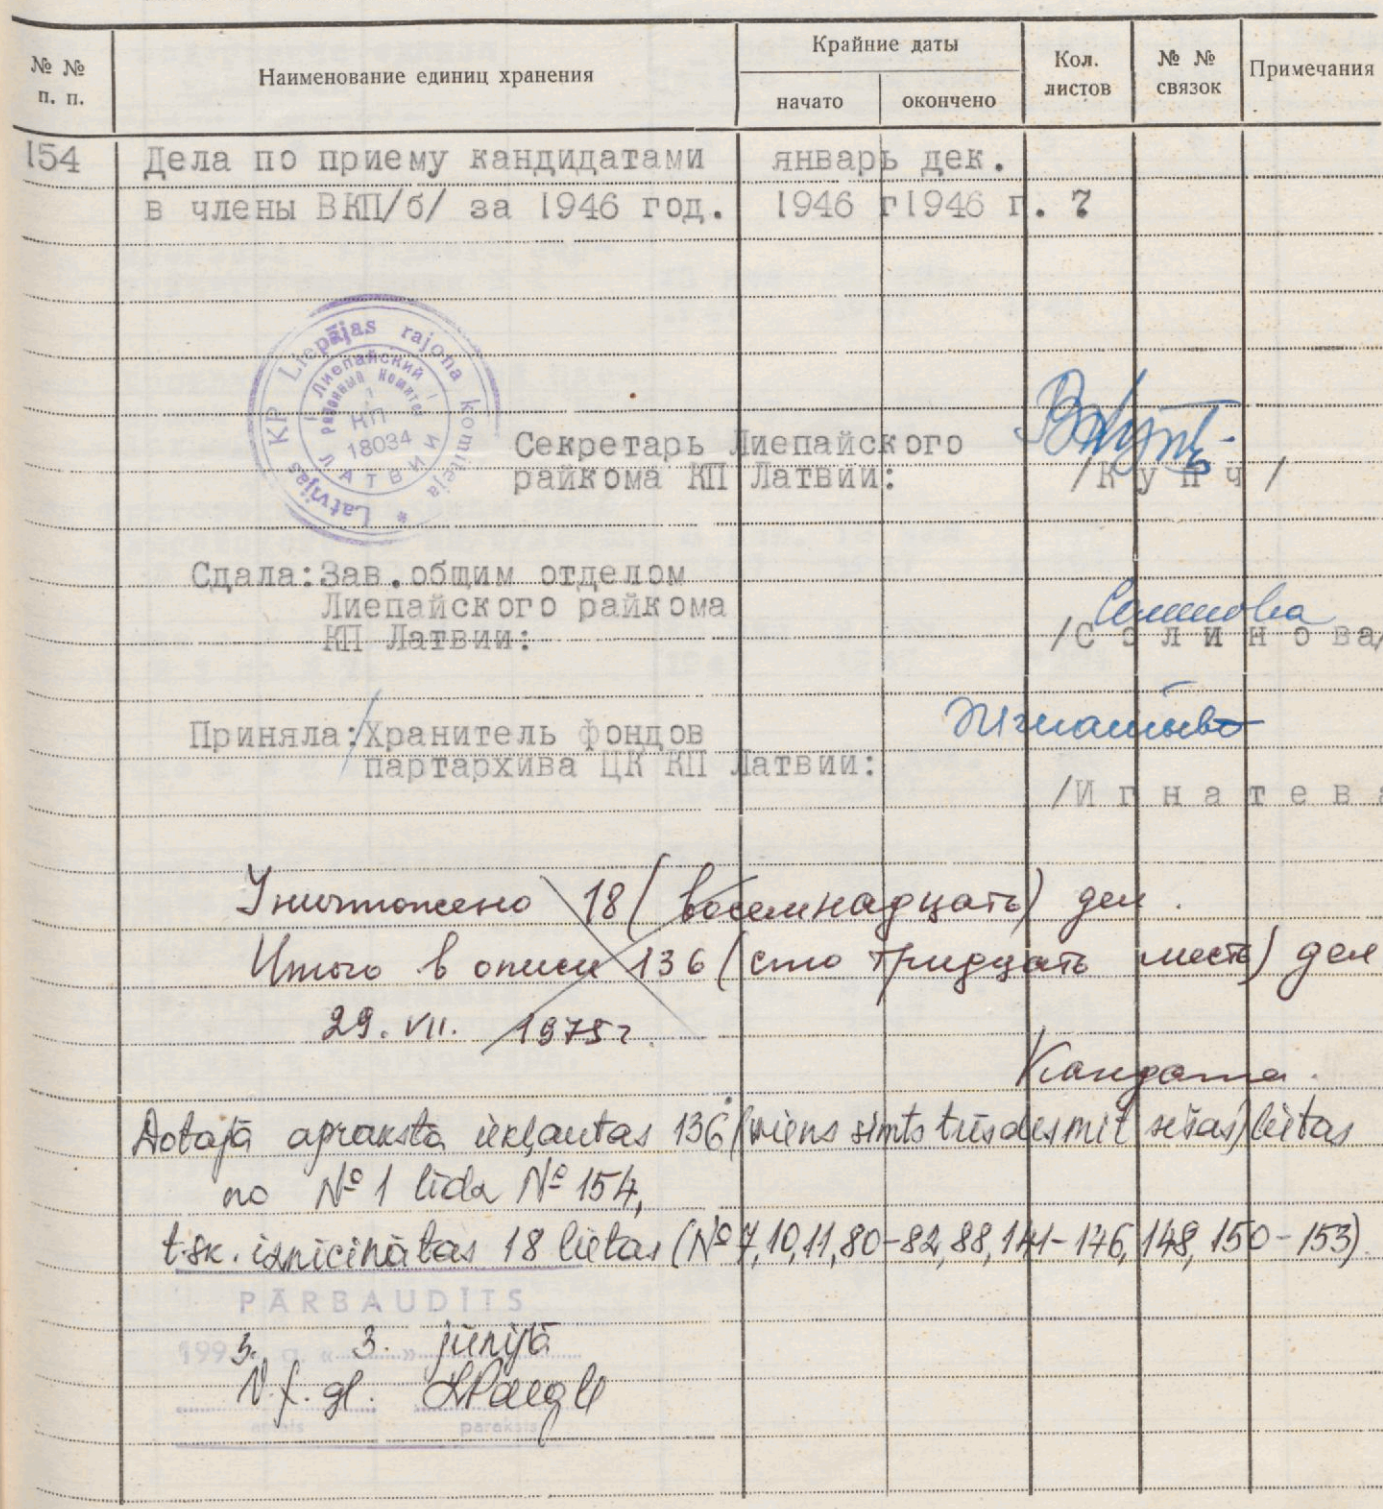 № № п. п. Наименование единиц хранения Крайние даты Кол. листов № № связок Примечания
начато окончено
154 Дела по приему кандидатами январь дек.
в члены ВКП/б/ за 1946 год. 1946 г 1946 г. 7
Latvijas KP Liepājas rajona komiteja *
Лиепайский районный комитет
КП
18034
ЛАТВИИ
Секретарь Лиепайского
райкома КП Латвии: /К у н ч /
Сдала: Зав. общим отделом
Лиепайского райкома
КП Латвии: /С о л и н о ва/
Приняла: Хранитель фондов
партархива ЦК КП Латвии:
/И г н а т е в а
Уничтожено 18 (восемнадцать) дел.
Итого в описи 136 (сто тридцать шесть) дел
29. VII. 1975 г.
Dotajā aprakstā iekļautas 136 (viens simts trīsdesmit sešas) lietas
no № 1 līdz № 154,
t.sk. iznīcinātas 18 lietas (№ 7, 10, 11, 80-82, 88, 141-146, 148, 150-153).
PĀRBAUDĪTS
1993. g. « 3. » jūnijā
V. f. gl.
amats paraksts